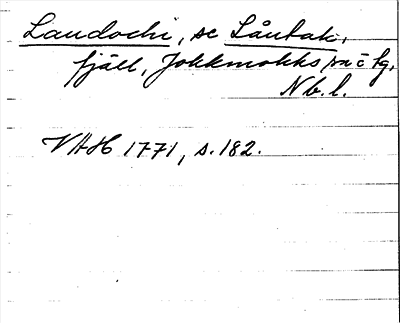 Laudochi, se Låutak,
fjäll, Jokkmokks sn o kg,
Nb.l.
VAH 1771, s. 182.